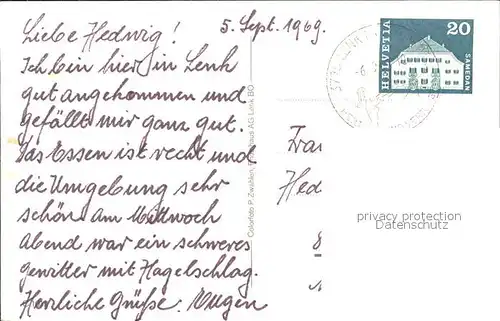 5. Sept. 1969.
Liebe Hedwig!
Ich bin hier in Lenk
gut angekommen und
gefällt mir ganz gut.
Das Essen ist recht und
die Umgebung sehr
schön am Mittwoch
Abend war ein schweres
gewitter mit Hagelschlag.
Herzliche Grüße. Eugen
HELVETIA
20
SAMEDAN
Fra
Hed
privacy protection
Datenschutz
8
Colorfoto P. Zwahlen, AG Lenk BO